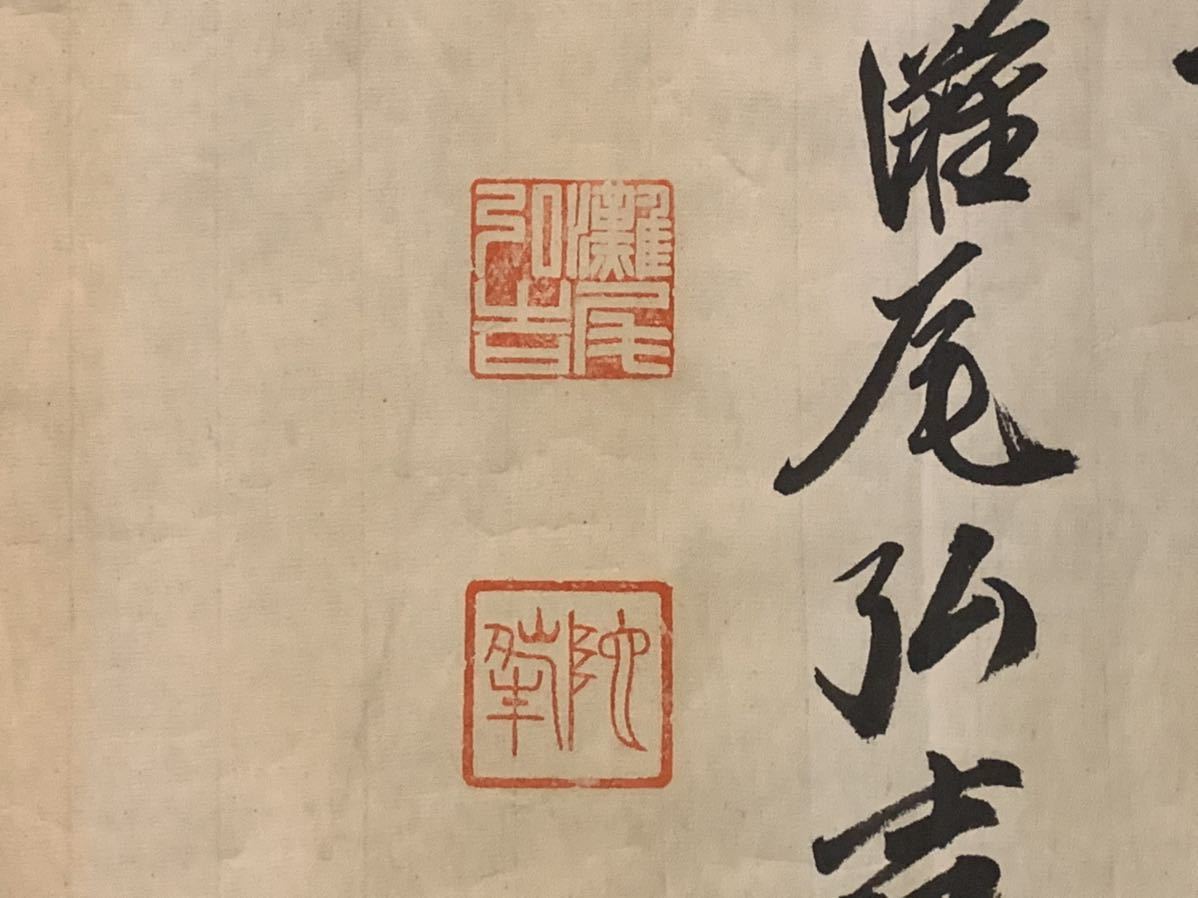 灘尾弘吉
灘尾弘吉